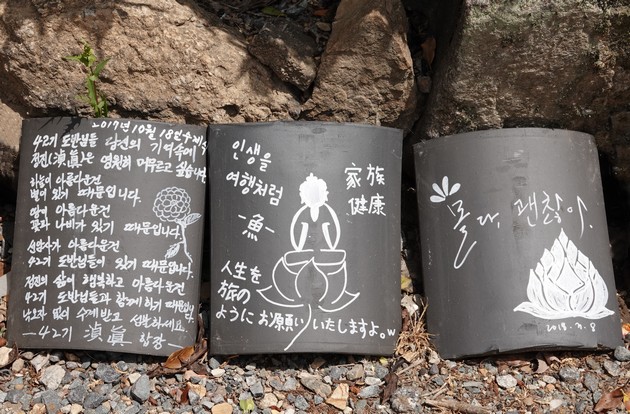 2017년 10월 18일 수계식
42기 도반님들 당신의 기억속에
정진(滇眞)은 영원히 머무르고 싶습니다.
하늘이 아름다운건
별이 있기 때문입니다.
땅이 아름다운건
꽃과 나비가 있기 때문입니다.
선방자가 아름다운건
42기 도반님들이 있기 때문입니다.
정진의 삶이 행복하고 아름다운건
42기 도반님들과 함께 하기 때문입니다.
많이 수계 받고 성불하세요.
-42기 滇眞 합장-
인생을
여행처럼
-魚-
家族
健康
人生を
旅の
ようにお願いいたしますよ。w
몰라, 괜찮아.
2018. 7. 8